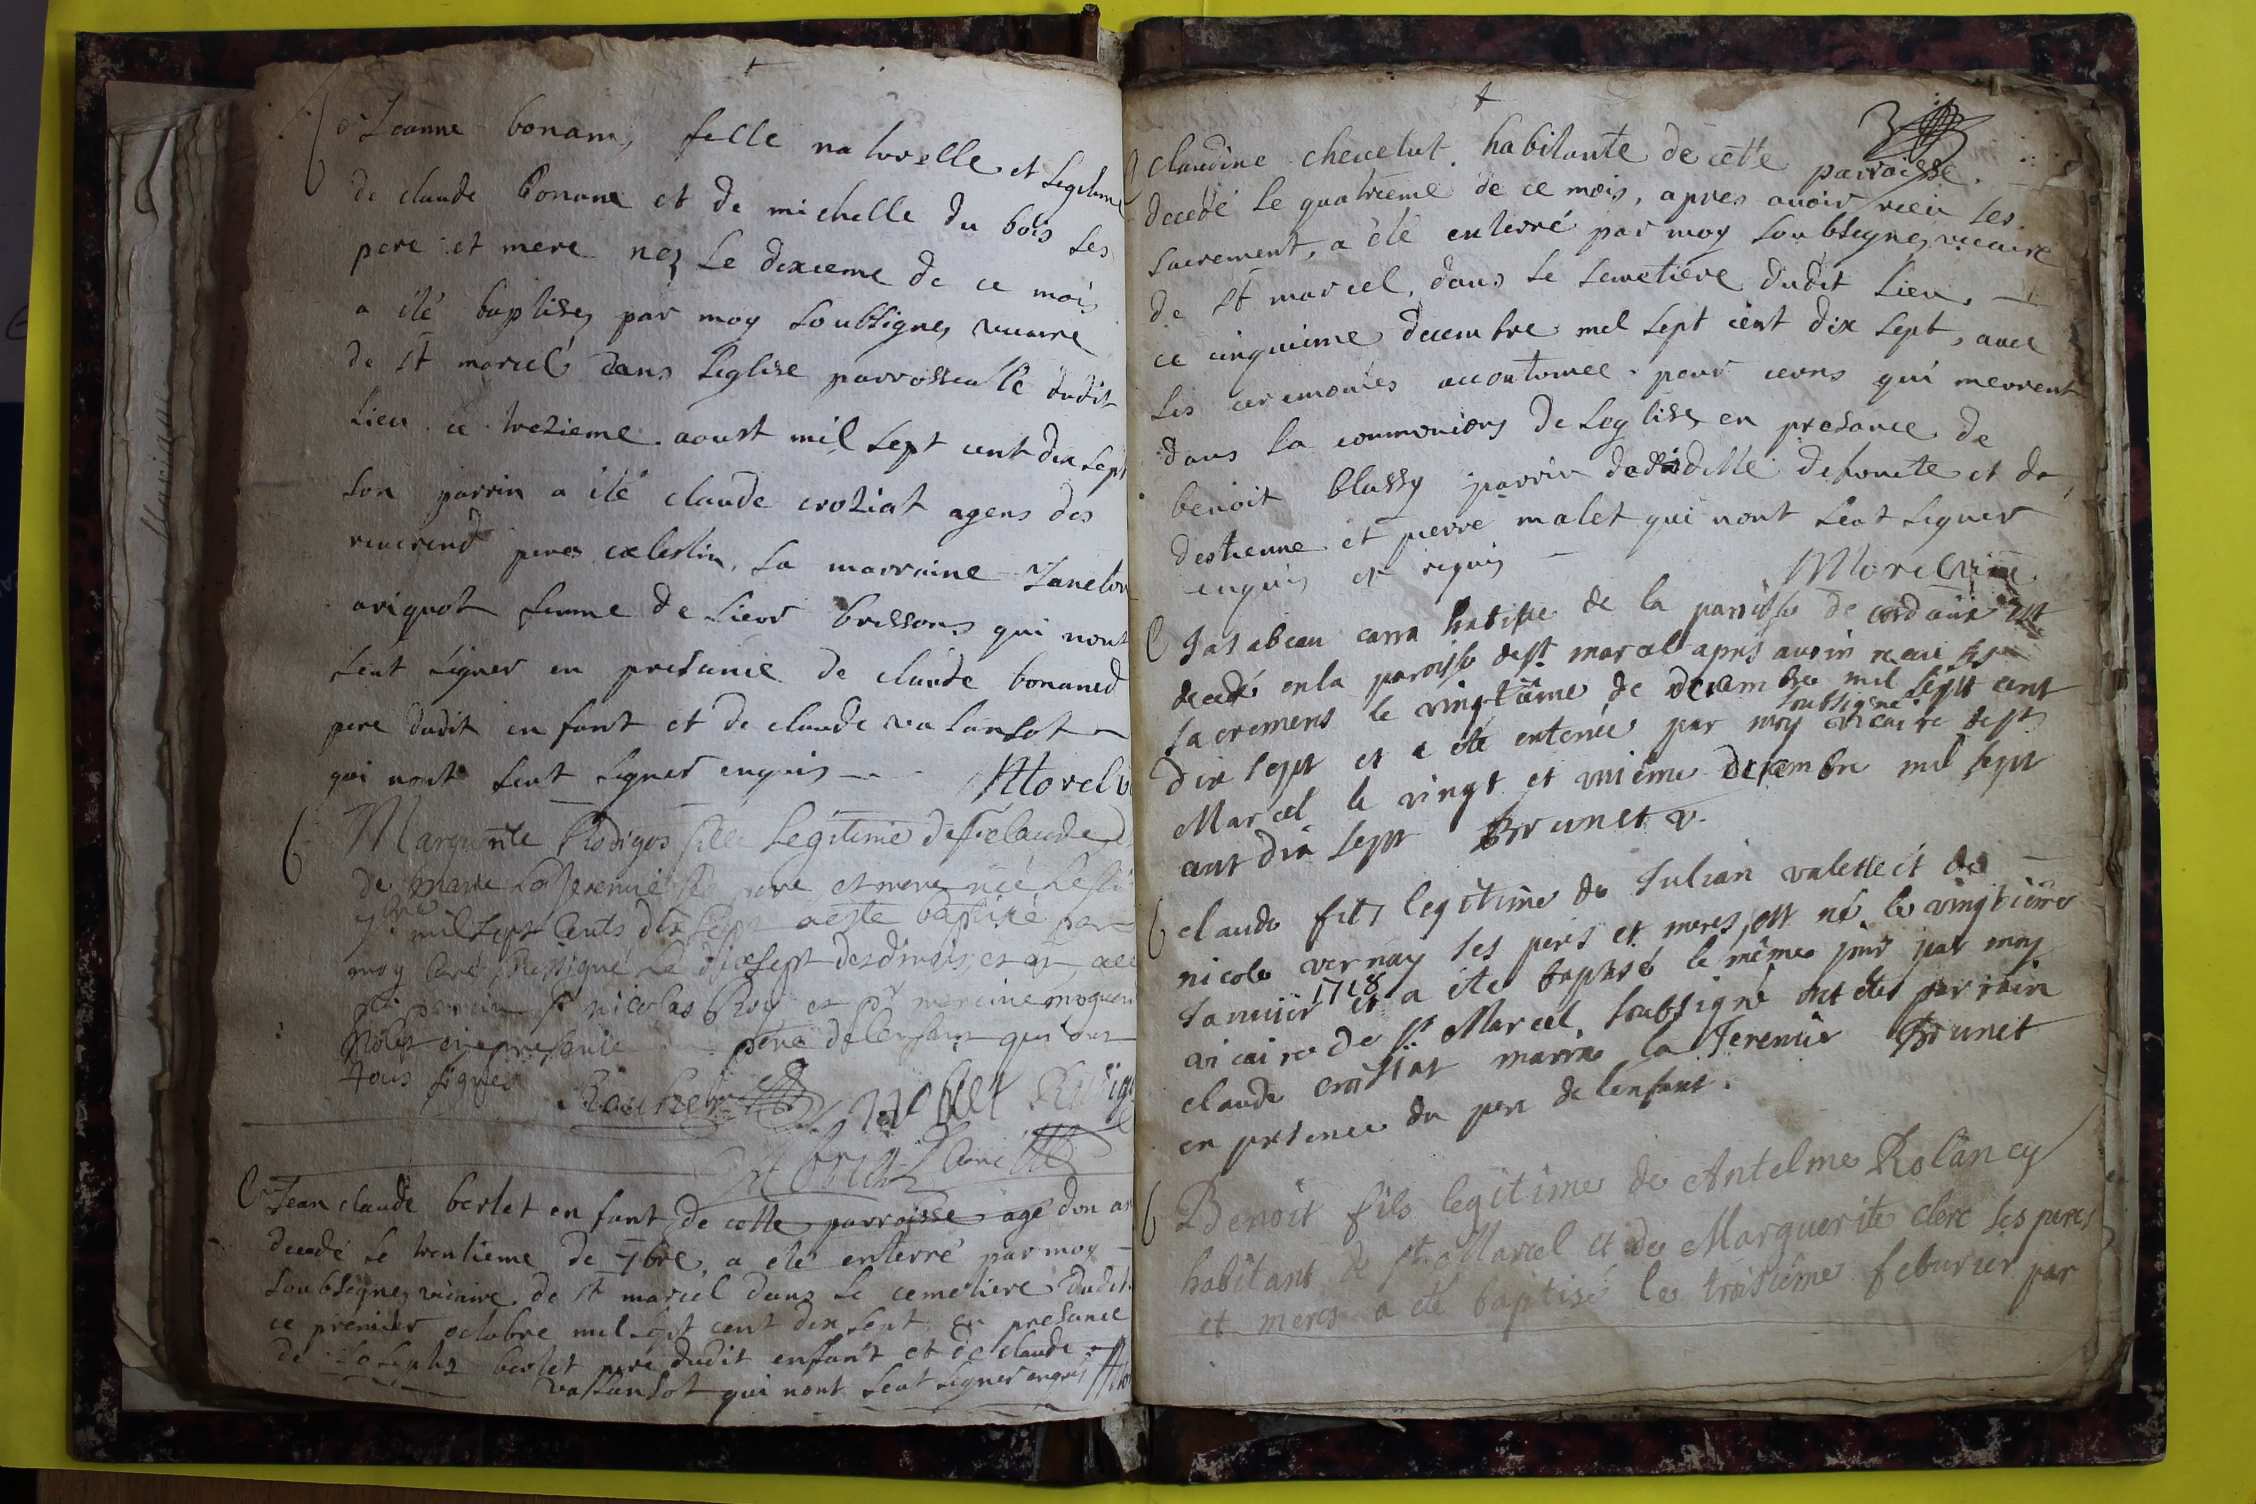 Jeanne bonam, fille naturelle et legitime
de claude bonam et de michelle du bois ses
pere et mere nez le dixieme de ce mois
a été baptisez par moy soubsignez vicaire
de st marcel dans leglise parrossialle dudit
lieu ce trezieme aoust mil sept cent dix sept
son parrin a été claude croziat agens des
reverend peres celestin, sa marraine
ariquot femme de sieur brissons qui nont
seut signer en presance de claude bonamed
pere dudit enfant et de claude valansot
qui nont seut signer enquis Morel v
Marguerite Rodigos fille legitime de claude
de marie la Jerenvie ses pere et mere née le
7bre mil sept cents dix sept a este baptisé par
moy curé soussigné le dixsept desdi mois et an
parrin sr nicolas Roy et pr maraine
Nolet en presence pere de lenfant qui ont
tous signés
nollet
Jean claude berlet enfant de cette parroisse agé dun an
decedé le trentieme de 7bre, a été enterré par moy
soubsignez vicaire de st marcel dans le cemetiere dudit
ce premier octobre mil sept cent dix sept en presance
de Josephz berlet pere dudit enfant et de claude
vallansot qui nont seut signer enquis
3
claudine chevetut habitante de cette parroisse
decedé le quatrieme de ce mois, apres avoir receu les
sacrement, a été enterré par moy soubsignez vicaire
de st marcel, dans le semetiere dudit lieu
ce cinquieme decembre mil sept cent dix sept, avec
les ceremonies accoutumee pour ceuns qui meurent
dans la communions de leglise en presance de
benoit blassy parrin de ditte defunte et de
destienne et pierre malet qui nont seut signer
enquis et requis
Morel vic
Isabeau carra native de la paroisse de est
decedé en la paroisse de st marcel apres avoir receu les
sacremens le vingtiéme de decembre mil sept cent
dix sept et a été enterrée par moy soussigné vicaire de st
Marcel le vingt et uniéme decembre mil sept
cent dix sept Brunet v.
claude fils legitime de Julian valette et de
nicole vernay ses peres et meres, est né le vingtiéme
Janvier 1718 et a été baptisé le même jour par moy
vicaire de st Marcel, soussigné ont été parrain
claude croissiat marrine la Jerenvie Brunet
en presence du pere de lenfant.
Benoit fils legitime de Antelme Rolancy
habitant de st Marcel et de Marguerite clerc ses peres
et meres a été baptisé le troisiême febvrier par